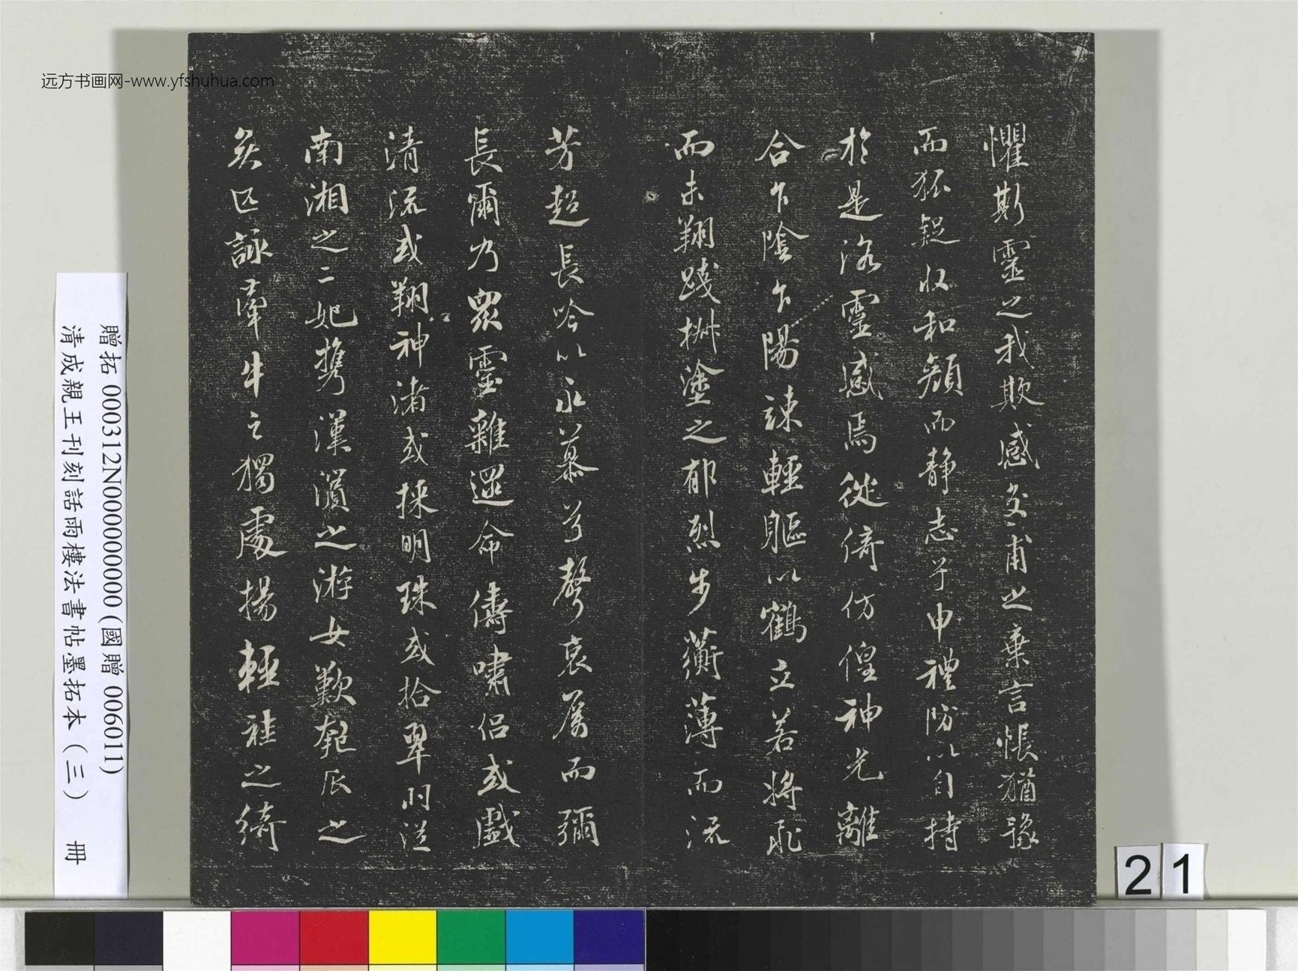 懼斯靈之我欺感交甫之棄言悵猶豫
而狐疑收和顏而静志予申禮防以自持
於是洛靈感焉徙倚仿偟神光離
合乍陰乍陽竦輕軀以鶴立若將飛
而未翔踐椒塗之郁烈步蘅薄而流
芳超長吟以永慕兮聲哀厲而彌
長爾乃眾靈雜遝命儔嘯侣或戲
清流或翔神渚或採明珠或拾翠羽從
南湘之二妃攜漢濱之游女歎匏之
矣匹詠牽牛之獨處揚輕袿之綺
远方书画网-www.yfshuhua.com
贈拓 000312N000000000(國贈 006011)
清成親王刊刻詒雨樓法書帖墨拓本(三) 冊
21